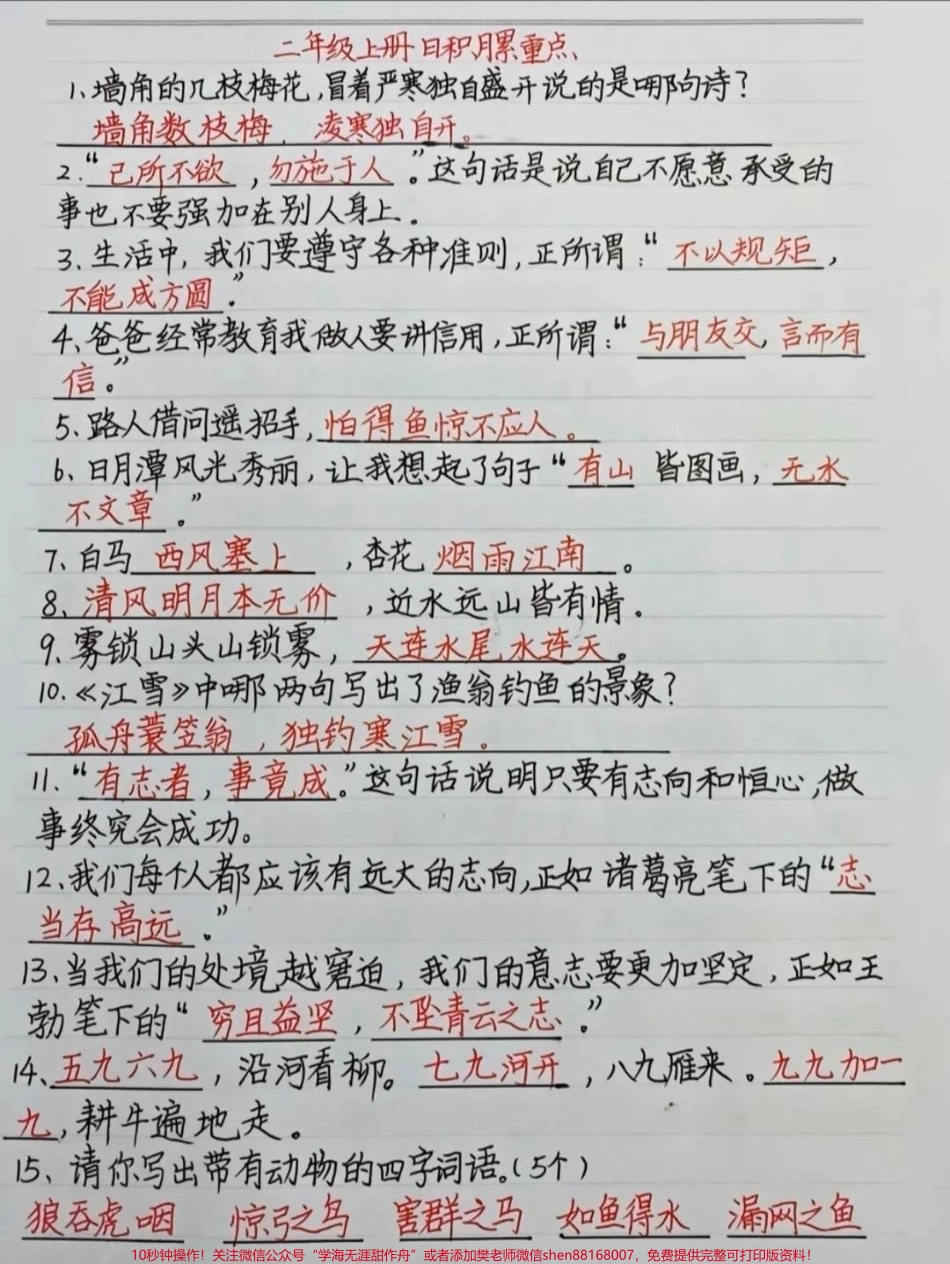 二年级上册日积月累重点
1、墙角的几枝梅花,冒着严寒独自盛开说的是哪句诗?
墙角数枝梅,凌寒独自开。
2."己所不欲,勿施于人。"这句话是说自己不愿意承受的
事也不要强加在别人身上.
3、生活中,我们要遵守各种准则,正所谓:"不以规矩,
不能成方圆。"
4、爸爸经常教育我做人要讲信用,正所谓:"与朋友交,言而有
信。"
5、路人借问遥招手,怕得鱼惊不应人。
6、日月潭风光秀丽,让我想起了句子"有山皆图画,无水
不文章。"
7、白马西风塞上,杏花烟雨江南。
8、清风明月本无价,近水远山皆有情。
9、雾锁山头山锁雾,天连水尾水连天。
10、《江雪》中哪两句写出了渔翁钓鱼的景象?
孤舟蓑笠翁,独钓寒江雪。
11、"有志者,事竟成。"这句话说明只要有志向和恒心,做
事终究会成功。
12、我们每个人都应该有远大的志向,正如诸葛亮笔下的"志
当存高远。"
13、当我们的处境越窘迫,我们的意志要更加坚定,正如王
勃笔下的"穷且益坚,不坠青云之志。"
14、五九六九,沿河看柳。七九河开,八九雁来。九九加一
九,耕牛遍地走。
15、请你写出带有动物的四字词语。(5个)
狼吞虎咽 惊弓之鸟 害群之马 如鱼得水 漏网之鱼
10秒钟操作!关注微信公众号“学海无涯甜作舟”或者添加樊老师微信shen88168007,免费提供完整可打印版资料!